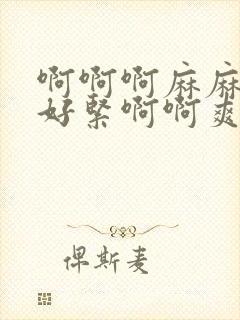 啊啊啊麻麻
好緊啊啊爽
俾斯麦